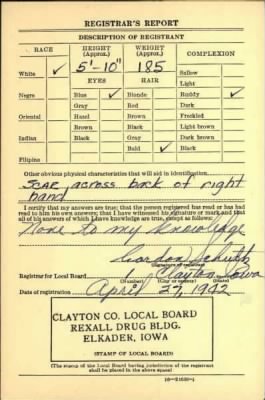 REGISTRAR'S REPORT
DESCRIPTION OF REGISTRANT
RACE HEIGHT (Approx.) WEIGHT (Approx.) COMPLEXION
White ✓ 5'-10" 185 Sallow
EYES HAIR Light
Negro Blue ✓ Blonde Ruddy ✓
Gray Red Dark
Oriental Hazel Brown Freckled
Brown Black Light brown
Indian Black Gray Dark brown
Bald ✓ Black
Filipino
Other obvious physical characteristics that will aid in identification
Scar across back of right
hand
I certify that my answers are true; that the person registered has read or has had
read to him his own answers; that I have witnessed his signature or mark and that
all of his answers of which I have knowledge are true, except as follows:
None to my knowledge
Gordon
(Signature of registrar)
Registrar for Local Board 1 Clayton Iowa
(Number) (City or county) (State)
Date of registration April 27, 1942
CLAYTON CO. LOCAL BOARD
REXALL DRUG BLDG.
ELKADER, IOWA
(STAMP OF LOCAL BOARD)
(The stamp of the Local Board having jurisdiction of the registrant
shall be placed in the above space)
16—21630-1